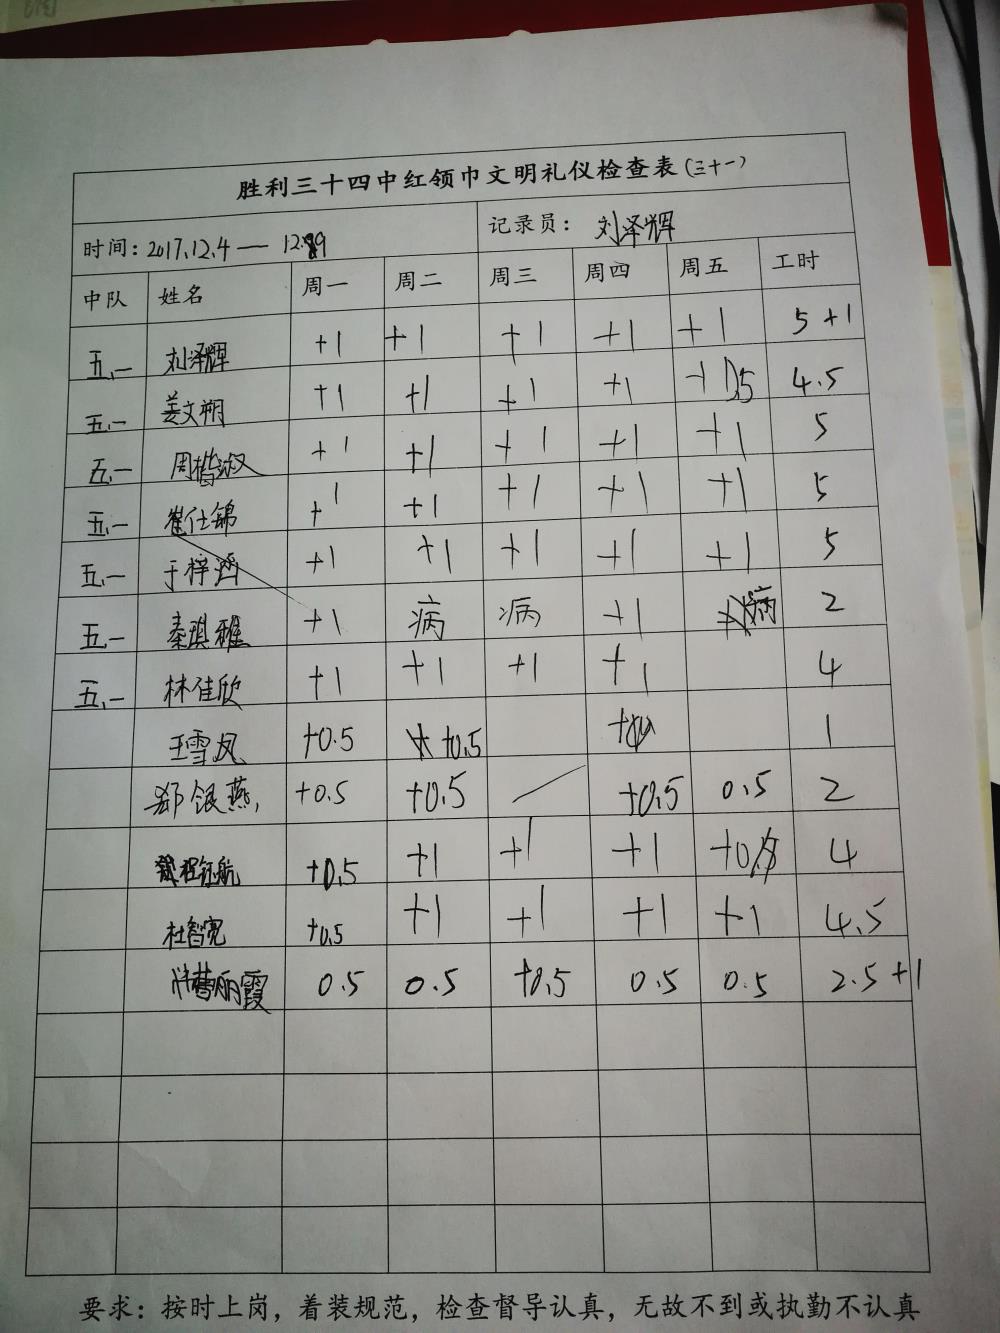 胜利三十四中红领巾文明礼仪检查表(三十一)
时间：2017.12.4 — 12.9 记录员：刘泽辉
中队 姓名 周一 周二 周三 周四 周五 工时
五.一 刘泽辉 +1 +1 +1 +1 +1 5+1
五.一 姜文朔 +1 +1 +1 +1 +0.5 4.5
五.一 周楷淑 +1 +1 +1 +1 +1 5
五.一 崔仕锦 +1 +1 +1 +1 +1 5
五.一 于梓涵 +1 +1 +1 +1 +1 5
五.一 秦琪雅 +1 病 病 +1 病 2
五.一 林佳欣 +1 +1 +1 +1 4
王雪凤 +0.5 +0.5 1
郑银燕 +0.5 +0.5 +0.5 0.5 2
程钰航 +0.5 +1 +1 +1 4
杜智宽 +0.5 +1 +1 +1 +1 4.5
丽霞 0.5 0.5 +0.5 0.5 0.5 2.5+1
要求：按时上岗，着装规范，检查督导认真，无故不到或执勤不认真